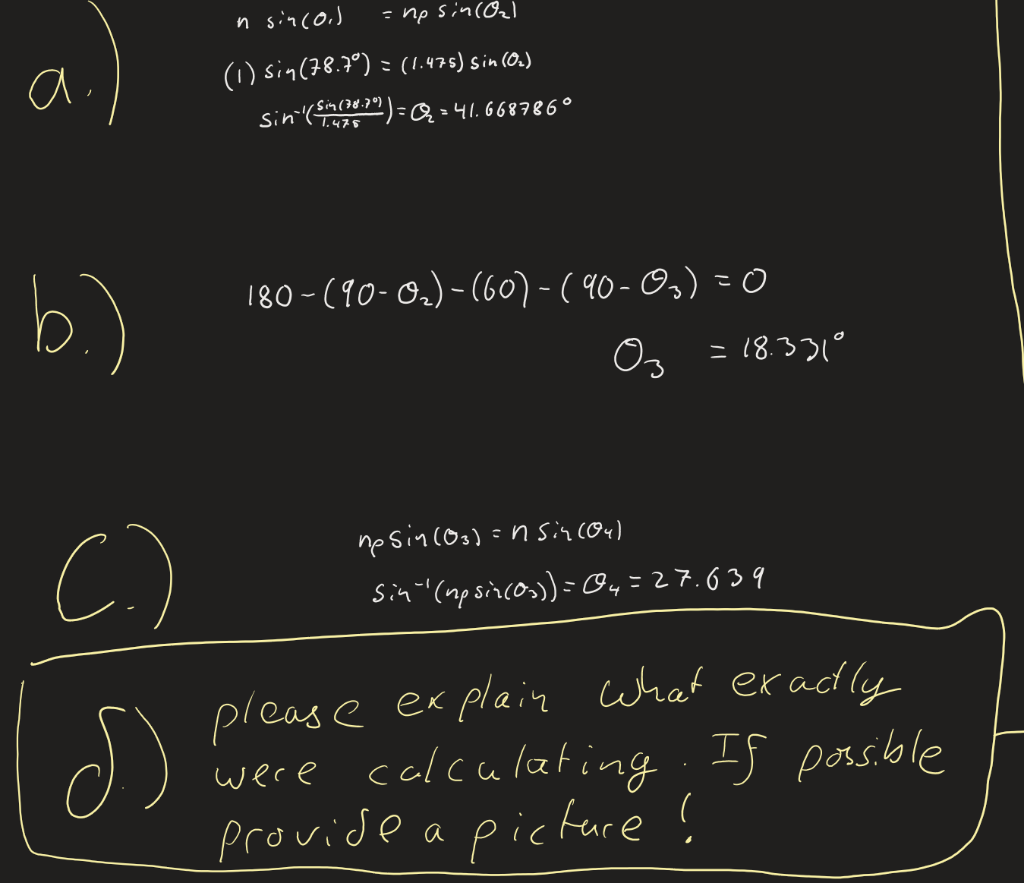 a.)
n sin(θ₁) = np sin(θ₂)
(1) sin(78.7°) = (1.475) sin(θ₂)
sin⁻¹(sin(78.7°)/1.475) = θ₂ = 41.668786°
b.)
180 - (90 - θ₂) - (60) - (90 - θ₃) = 0
θ₃ = 18.331°
c.)
np sin(θ₃) = n sin(θ₄)
sin⁻¹(np sin(θ₃)) = θ₄ = 27.639
d.)
please explain what exactly
were calculating. If possible
provide a picture!